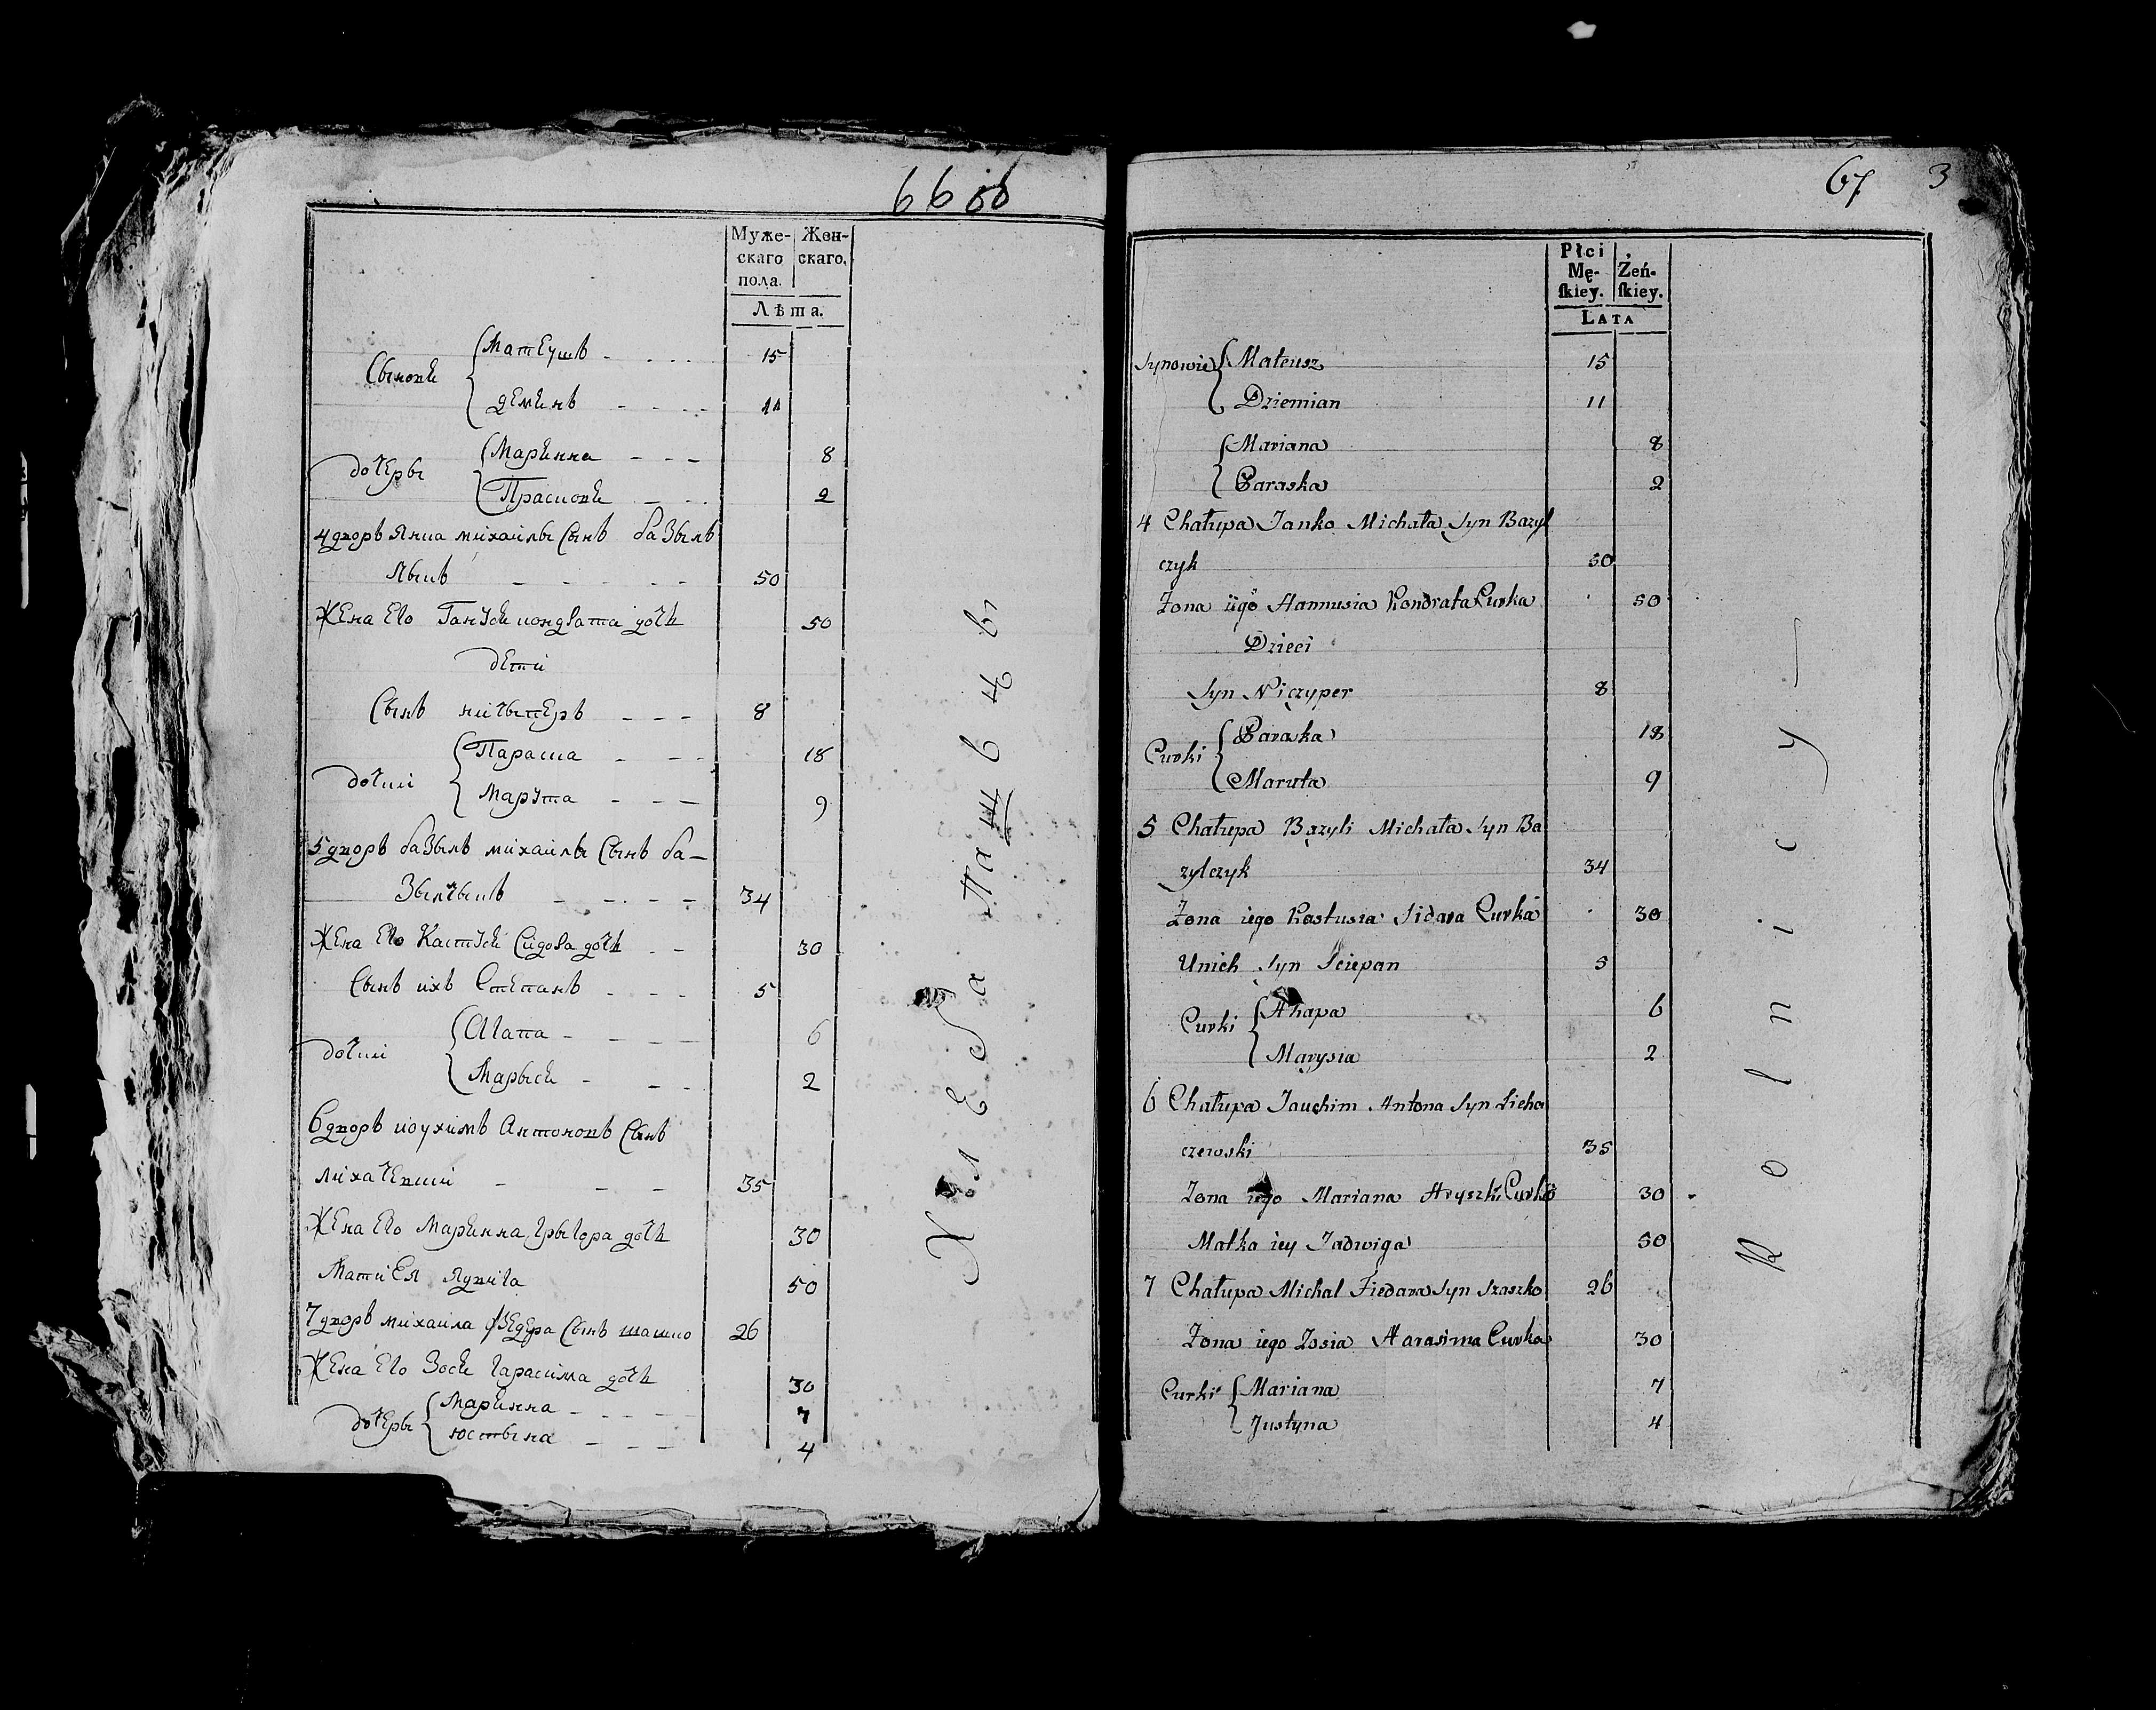 66 об
Муже-
скаго
пола.
Жен-
скаго.
Лѣта.
Сыновя Матеушъ - - - - 15
Демянъ - - - - 11
дочеры Марянна - - - 8
Прасковя - - - 2
4 дворъ Янка михаилы Сынъ базыль
чыкъ - - - - - - 50
Жена Его Гануся кондрата дочь 50
дети
Сынъ ничыперъ - - - 8
дочки Параска - - - 18
Марута - - - 9
5 дворъ базыль михаилы Сынъ ба-
зыльчыкъ - - - - 34
Жена Его Кастуся Сидора дочь - - 30
Сынъ ихъ Степанъ - - - 5
дочки Агапа - - - - 6
Марыся - - - 2
6 дворъ иоухимъ Антоновъ Сынъ
лихачевски - - - 35
Жена Его Марянна грыгора дочь 30
Мати Ея Ядвига 50
7 дворъ михаила фведера Сынъ шашко 26
Жена Его Зося гарасима дочь 30
дочеры Марянна - - - - 7
юстына - - - 4
Хлеба пашцы
67 3
Płci
Mę-
ſkiey.
Żeń-
ſkiey.
LATA
Synowie Mateusz 15
Dziemian 11
Mariana 8
Paraska 2
4 Chałupa Janko Michała Syn Bazyl
czyk 50
Zona iigo Hannusia Kondrata Curka 50
Dzieci
Syn Niczyper 8
Curki Paraska 18
Maruta 9
5 Chałupa Bazyli Michała Syn Ba
zylczyk 34
Zona iego Kostusia Sidara Curka 30
Unich Syn Sciepan 5
Curki Ahapa 6
Marysia 2
6 Chałupa Jauchim Antona Syn Licha
czewski 35
Zona iego Mariana Hryszki Curka 30
Matka iey Jadwiga 50
7 Chałupa Michal Fiedara Syn Szaszko 26
Zona iego Zosia Harasima Curka 30
Curki Mariana 7
Justyna 4
Rolnicy —